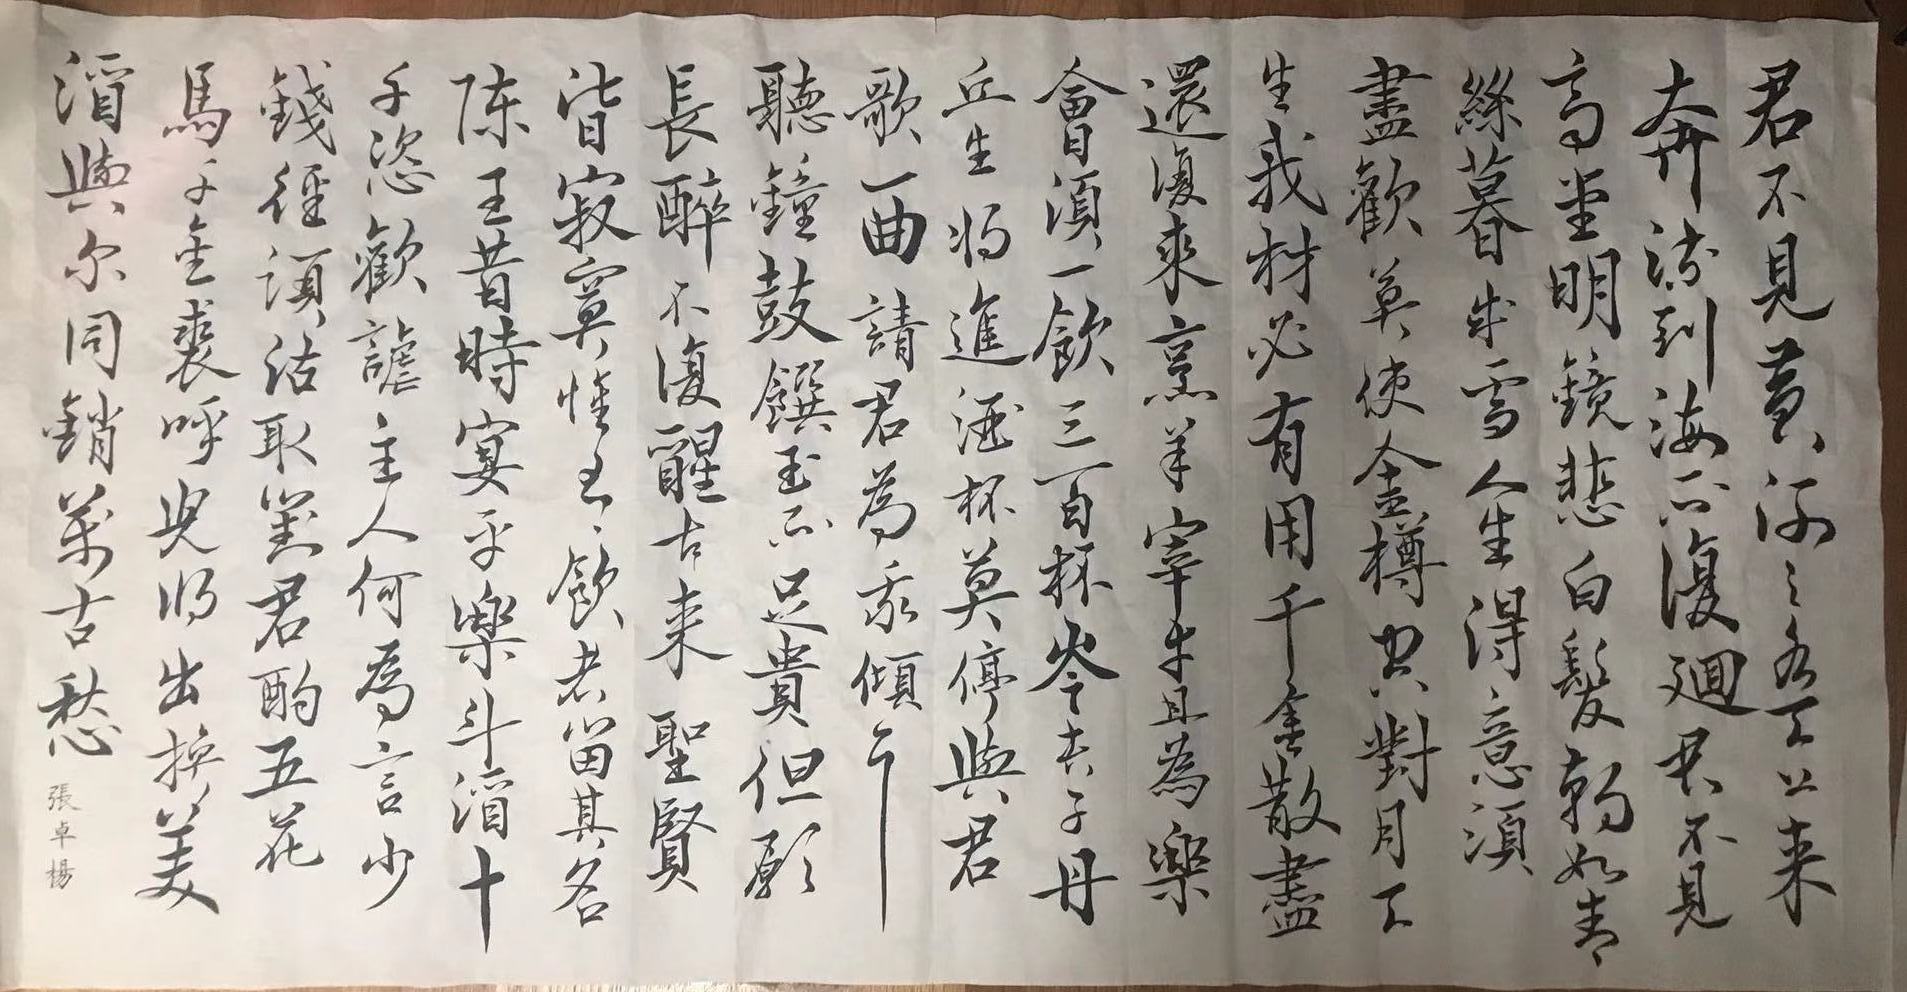 君不見黃河之水天上来
奔流到海不復廻君不見
高堂明鏡悲白髮朝如青
絲暮成雪人生得意須
盡歡莫使金樽空對月天
生我材必有用千金散盡
還復來烹羊宰牛且為樂
會須一飲三百杯岑夫子丹
丘生將進酒杯莫停與君
歌一曲請君為我傾耳
聽鐘鼓饌玉不足貴但願
長醉不復醒古来聖賢
皆寂寞惟有飲者留其名
陈王昔時宴平樂斗酒十
千恣歡謔主人何為言少
錢徑須沽取對君酌五花
馬千金裘呼兒將出換美
酒與尔同銷萬古愁
張卓楊